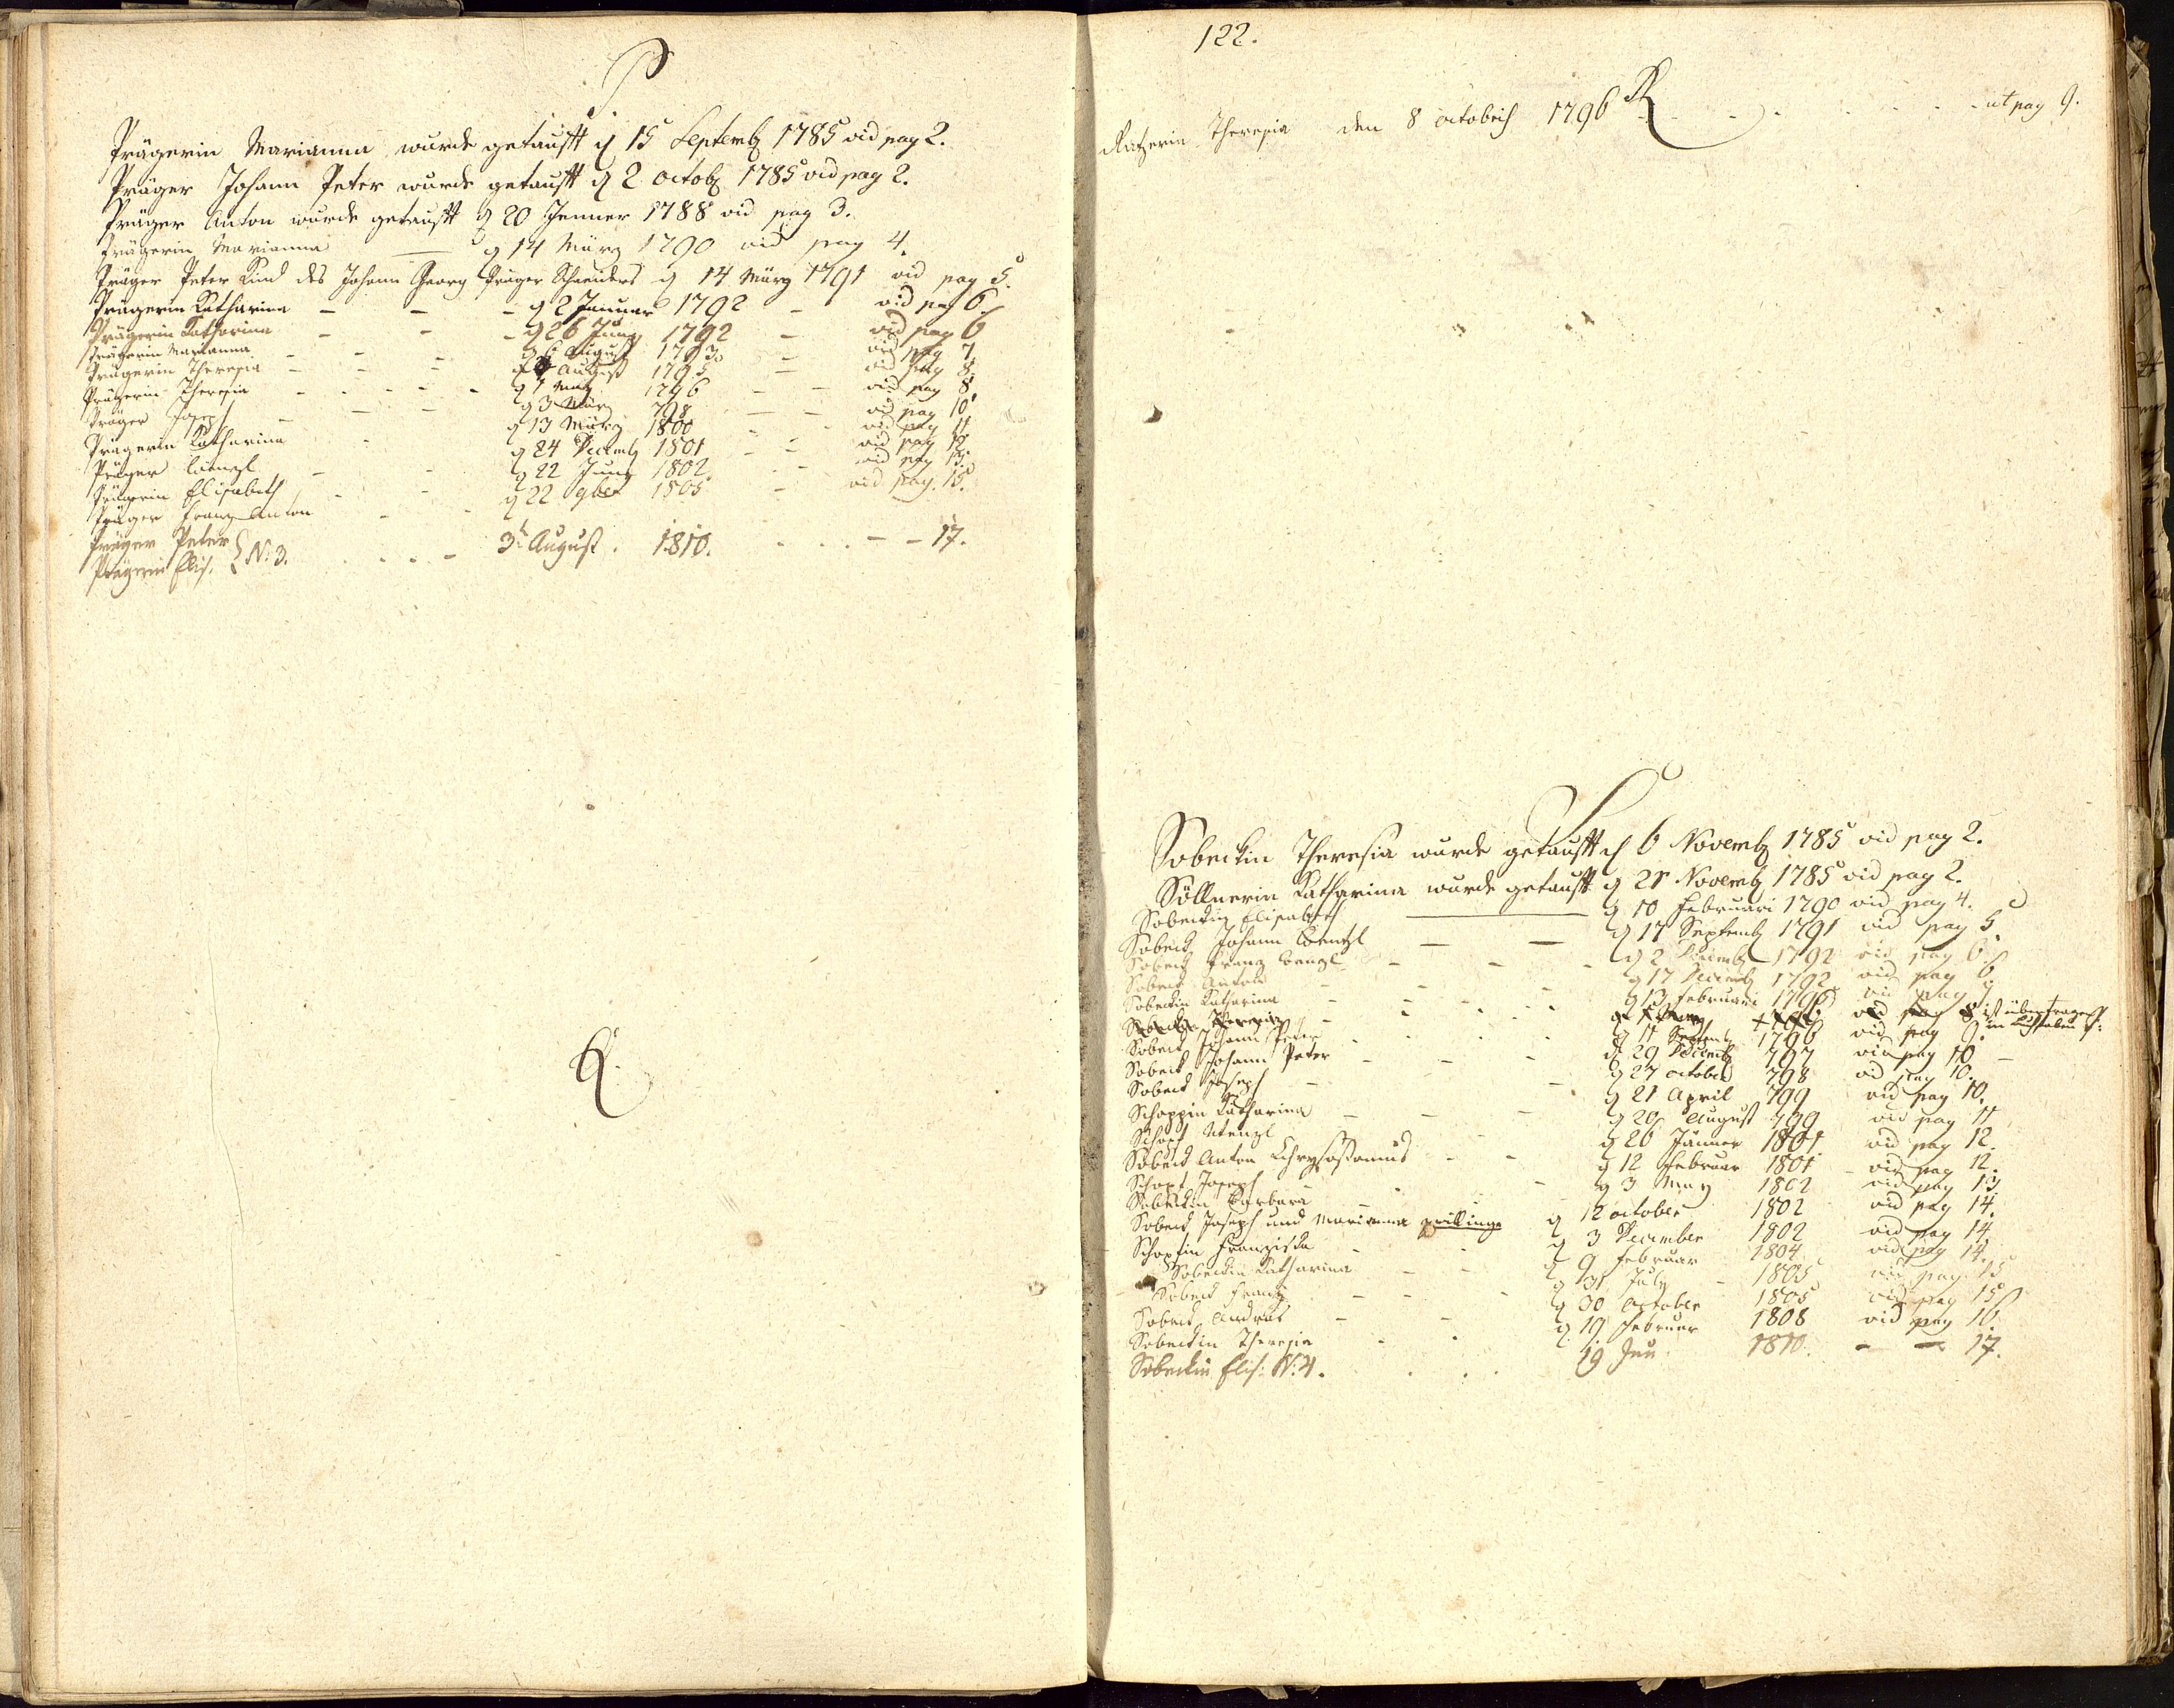 P
Prägerin Marianna wurde getauft d 15 Septemb 1785 vid pag 2.
Präger Johann Peter wurde getauft d 2 octob 1785 vid pag 2.
Präger Anton wurde getauft d 20 Jenner 1788 vid pag 3.
Prägerin Marianna — d 14 März 1790 vid pag 4.
Präger Peter Kind des Johann Georg Präger Schneiders d 14 März 1791 vid pag 5.
Prägerin Katharina - - - d 2 Januar 1792 - vid pag 6.
Prägerin Katharina - - - d 26 Juny 1792 - vid pag 6
Prägerin Marianna - - - d 6 August 1793. - vid pag 7.
Prägerin Theresia - - - d August 1795 - vid pag 8.
Prägerin Theresia - - - d 1 May 1796 - - vid pag 8.
Präger Joseph - - - d 3 März 798 - - vid pag 10.
Prägerin Katharina - d 13 März 1800 - - vid pag 11
Präger Wenzl - - d 24 Decemb 1801 - - vid pag 12
Prägerin Elisabeth - - d 22 Juny 1802 - - vid pag 13.
Präger Franz Anton - - d 22 9ber 1805 - vid pag. 15.
Präger Peter
Prägerin Elis. } N: 3. . . . - 3t August . 1810. . . . - - 17.
Q.
122.
R
Ratzerin Theresia den 8 octobris 1796 - - - ut pag 9.
S
Sobeckin Theresia wurde getauft d 6 Novemb 1785 vid pag 2.
Söllnerin Katharina wurde getauft d 21 Novemb 1785 vid pag 2.
Sobeckin Elisabeth — d 10 Februari 1790 vid pag 4.
Sobeck Johann Wentzl — — d 17 Septemb 1791 vid pag 5.
Sobeck Franz Wenzl - - - d 2 Decemb 1792 vid pag 6.
Sobeck Anton - - - d 17 Decemb 1792 vid pag 6
Sobeckin Katharina - - - d 13 Februari 1796 vid pag
Theresia - - - vid pag 8 ist übertragen
in Buchstaben P:
Sobeck Johann Peter - - - d 11 Septemb 1796 vid pag 9.
Sobeck Johann Peter - - - d 29 Decemb 797 vid pag 10 -
Sobeck Joseph - - d 27 october 798 vid pag 10.
Schoppin Katharina - - - d 21 April 799 vid pag 10.
Wenzl - - - d 20 August 799 vid pag 11
Sobeck Anton Chrysostomus - - d 26 Jänner 1801 vid pag 12.
Schopt Joseph - - d 12 Februar 1801 - vid pag 12.
Sobeckin Barbara - - d 3 May 1802 vid pag 13.
Sobeck Joseph und Marianna zwillinge d 12 october 1802 vid pag 14.
Schoptin Franziska - - d 3 December 1802 vid pag 14.
Sobeckin Katharina - - d 9 Februar 1804 vid pag 14.
Sobeck Franz - - - d 31 July - 1805 vid pag. 15
Sobeck Andreas - - d 30 october 1805 vid pag 15
Sobeckin Theresia - - d. 19. Februar 1808 vid pag 16.
Sobeckin Elis: N: 4. . . . 19 Jun. 1810. - - 17.